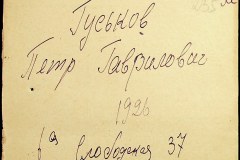 Гуськов
Петр Гаврилович
1926
Слободская 37